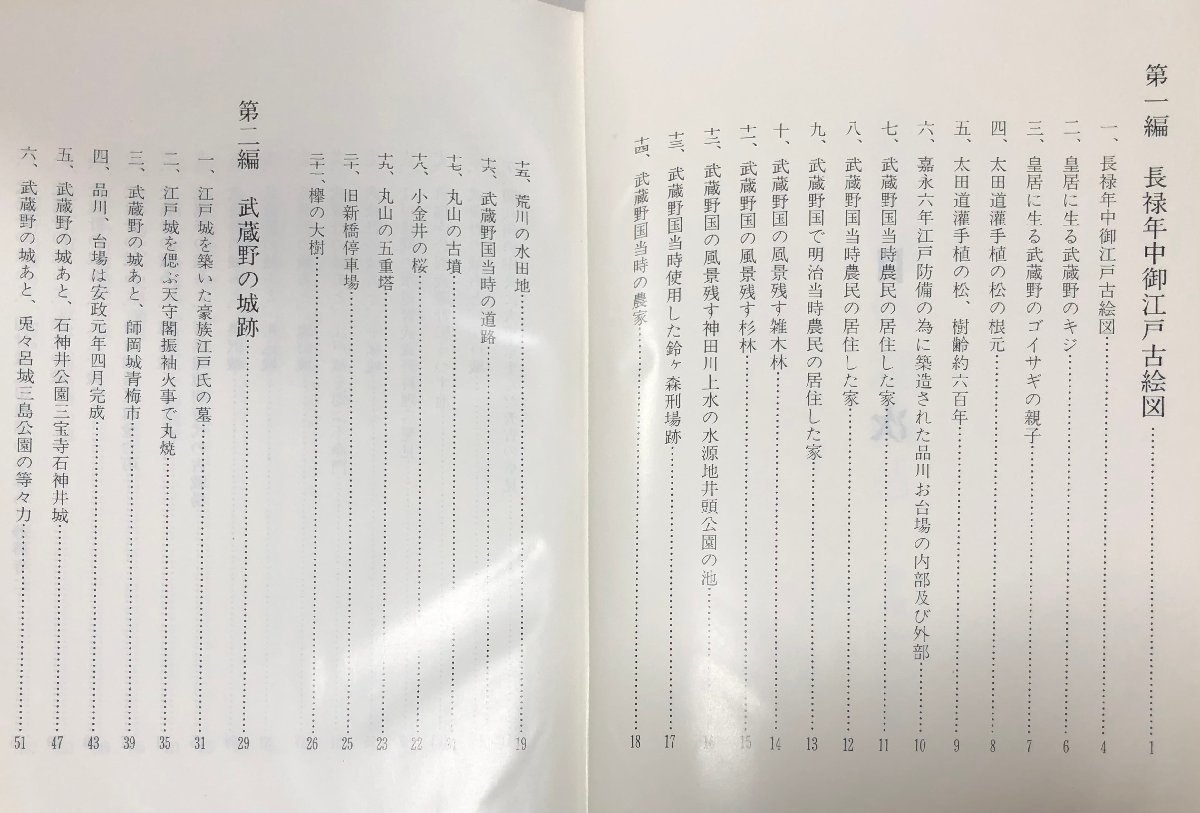 第一編　長禄年中御江戸古絵図……1
一、長禄年中御江戸古絵図……4
二、皇居に生る武蔵野のキジ……6
三、皇居に生る武蔵野のゴイサギの親子……7
四、太田道灌手植の松の根元……8
五、太田道灌手植の松、樹齢約六百年……9
六、嘉永六年江戸防備の為に築造された品川お台場の内部及び外部……10
七、武蔵野国当時農民の居住した家……11
八、武蔵野国当時農民の居住した家……12
九、武蔵野国で明治当時農民の居住した家……13
十、武蔵野国の風景残す雑木林……14
十一、武蔵野国の風景残す杉林……15
十二、武蔵野国の風景残す神田川上水の水源地井頭公園の池……16
十三、武蔵野国当時使用した鈴ヶ森刑場跡……17
十四、武蔵野国当時の農家……18
十五、荒川の水田地……19
十六、武蔵野国当時の道路
十七、丸山の古墳……21
十八、小金井の桜……22
十九、丸山の五重塔……23
二十、旧新橋停車場……25
二十一、欅の大樹……26
第二編　武蔵野の城跡……29
一、江戸城を築いた豪族江戸氏の墓……31
二、江戸城を偲ぶ天守閣振袖火事で丸焼……35
三、武蔵野の城あと、師岡城青梅市……39
四、品川、台場は安政元年四月完成……43
五、武蔵野の城あと、石神井公園三宝寺石神井城……47
六、武蔵野の城あと、兎々呂城三島公園の等々力……51